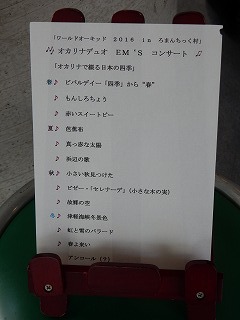 「ワールドオーキッド　2016　in　ろまんちっく村」
♪ オカリナデュオ　EM'S　コンサート ♫
「オカリナで綴る日本の四季」
春♪ ビバルディー「四季」から“春”
♪ もんしろちょう
♪ 赤いスイートピー
夏♪ 芭蕉布
♪ 真っ赤な太陽
♪ 浜辺の歌
秋♪ 小さい秋見つけた
♪ ビゼー・「セレナーデ」（小さな木の実）
♪ 故郷の空
冬♪ 津軽海峡冬景色
♪ 虹と雪のバラード
♪ 春よ来い
アンコール（？）